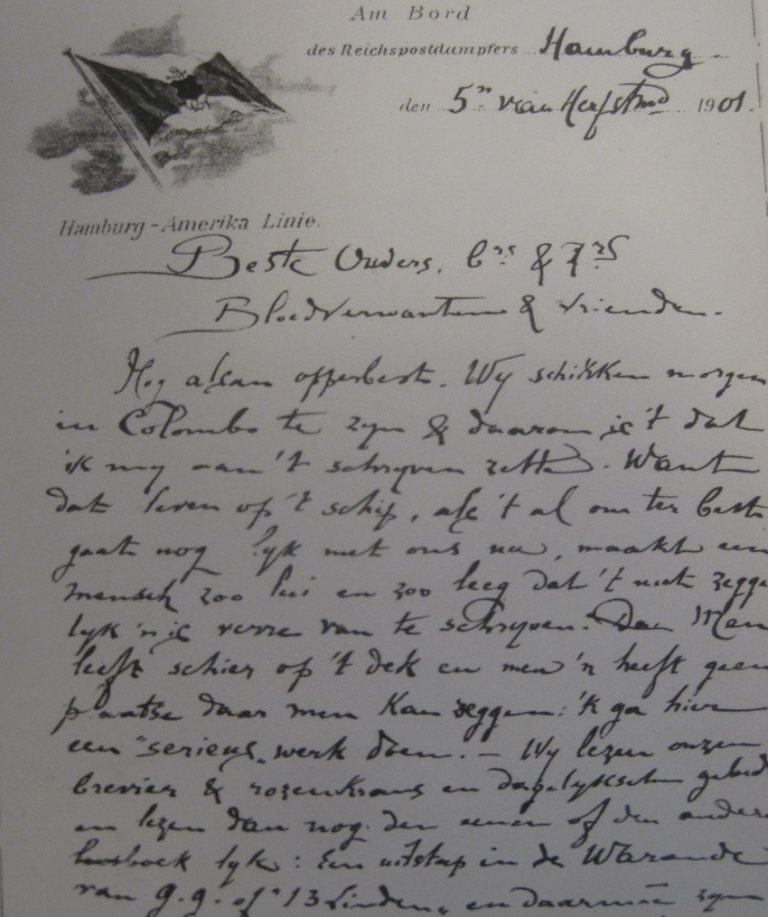 Am Bord
des Reichspostdampfers Hamburg
den 5n van Herfstmd 1901.
Hamburg-Amerika Linie.
Beste Ouders, brs & Zrs
Bloedverwanten & Vrienden.
Nog alsan opperbest. Wy schikken morgen
in Colombo te zyn & daarom is 't dat
ik my aan 't schryven zette. Want
dat leven op 't schip, als 't al om ter best
gaat nog lyk met ons nu, maakt een
mensch zoo lui en zoo leeg dat 't niet zegge
lyk 'n is verre van te schryven. Men
leeft schier op 't dek en men 'n heeft geen
plaatse daar men kan zeggen: 'k ga hier
een "serieus" werk doen. - Wy lezen onzen
brevier & rozenkrans en dagelykschen gebed
en lezen dan nog den eenen of den andere
boek lyk: Een uitstap in de Warande
van G.G. of "13 Linden" en daarmeê zyn